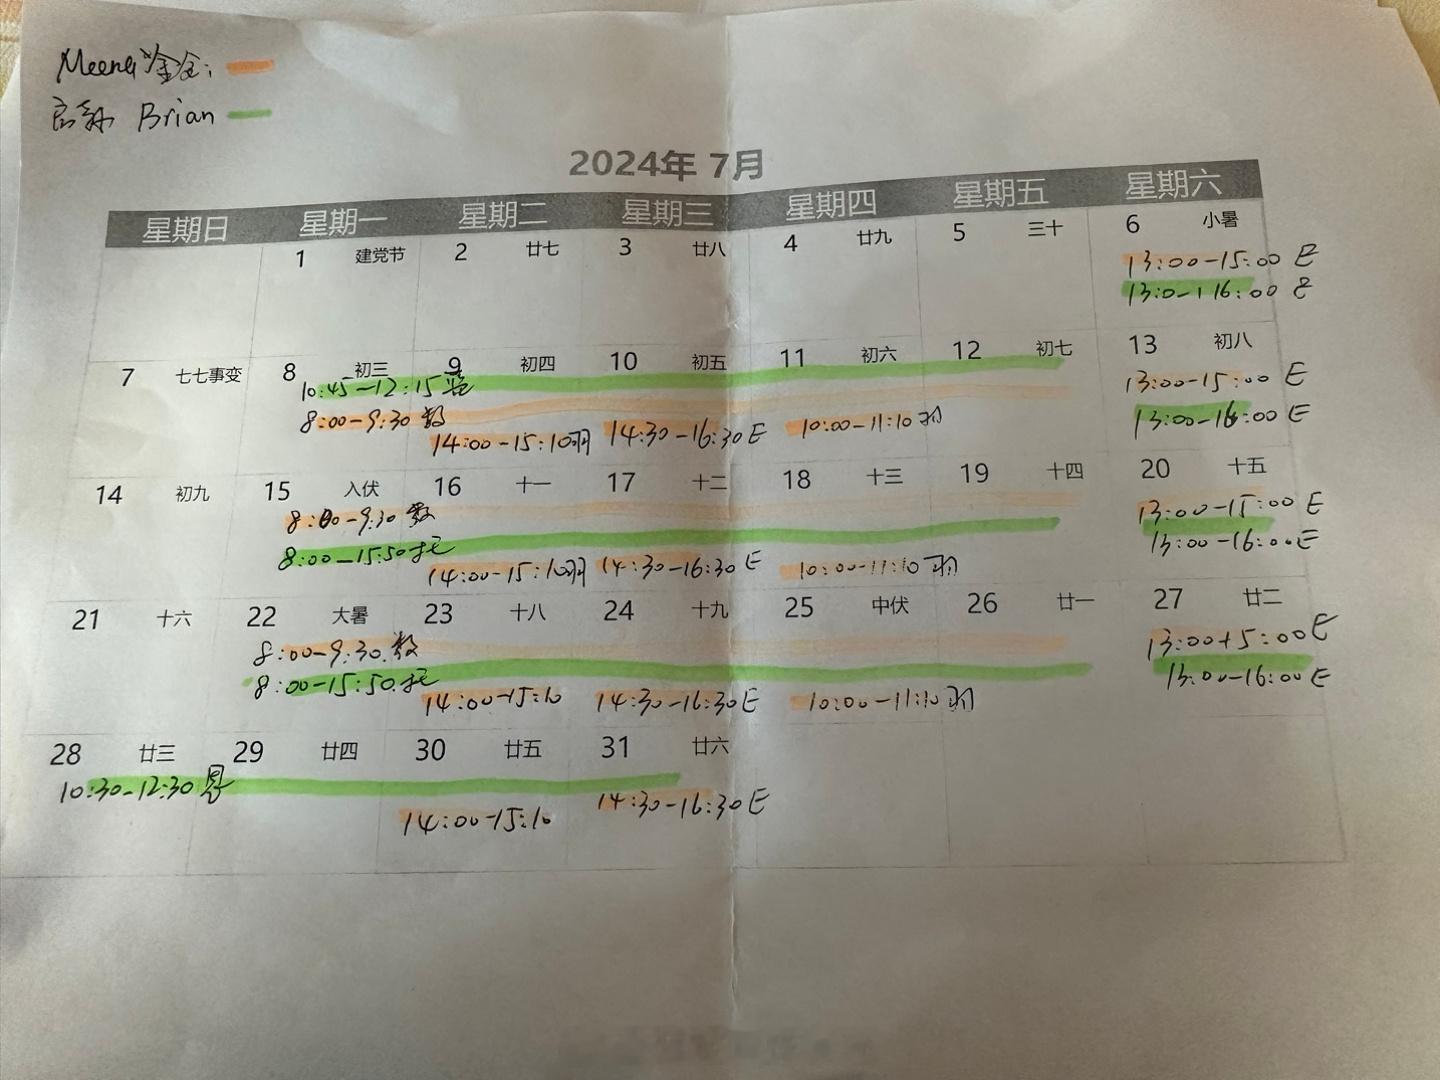 Meena
Brian
2024年 7月
星期日 星期一 星期二 星期三 星期四 星期五 星期六
1 建党节 2 廿七 3 廿八 4 廿九 5 三十 6 小暑
13:00-15:00 E
16:00
7 七七事变 8 初三 9 初四 10 初五 11 初六 12 初七 13 初八
10:45-12:15 13:00-15:00 E
8:00-9:30 数 13:00-16:00 E
14:00-15:10羽 14:30-16:30 E 10:00-11:10 羽
14 初九 15 入伏 16 十一 17 十二 18 十三 19 十四 20 十五
8:00-9:30 数 13:00-15:00 E
8:00-15:50托 13:00-16:00E
14:00-15:10羽 14:30-16:30 E 10:00-11:10 羽
21 十六 22 大暑 23 十八 24 十九 25 中伏 26 廿一 27 廿二
8:00-9:30.数 13:00-15:00E
8:00-15:50.托 13:00-16:00E
14:00-15:10 14:30-16:30E 10:00-11:10 羽
28 廿三 29 廿四 30 廿五 31 廿六
10:30-12:30
14:00-15:10 14:30-16:30 E